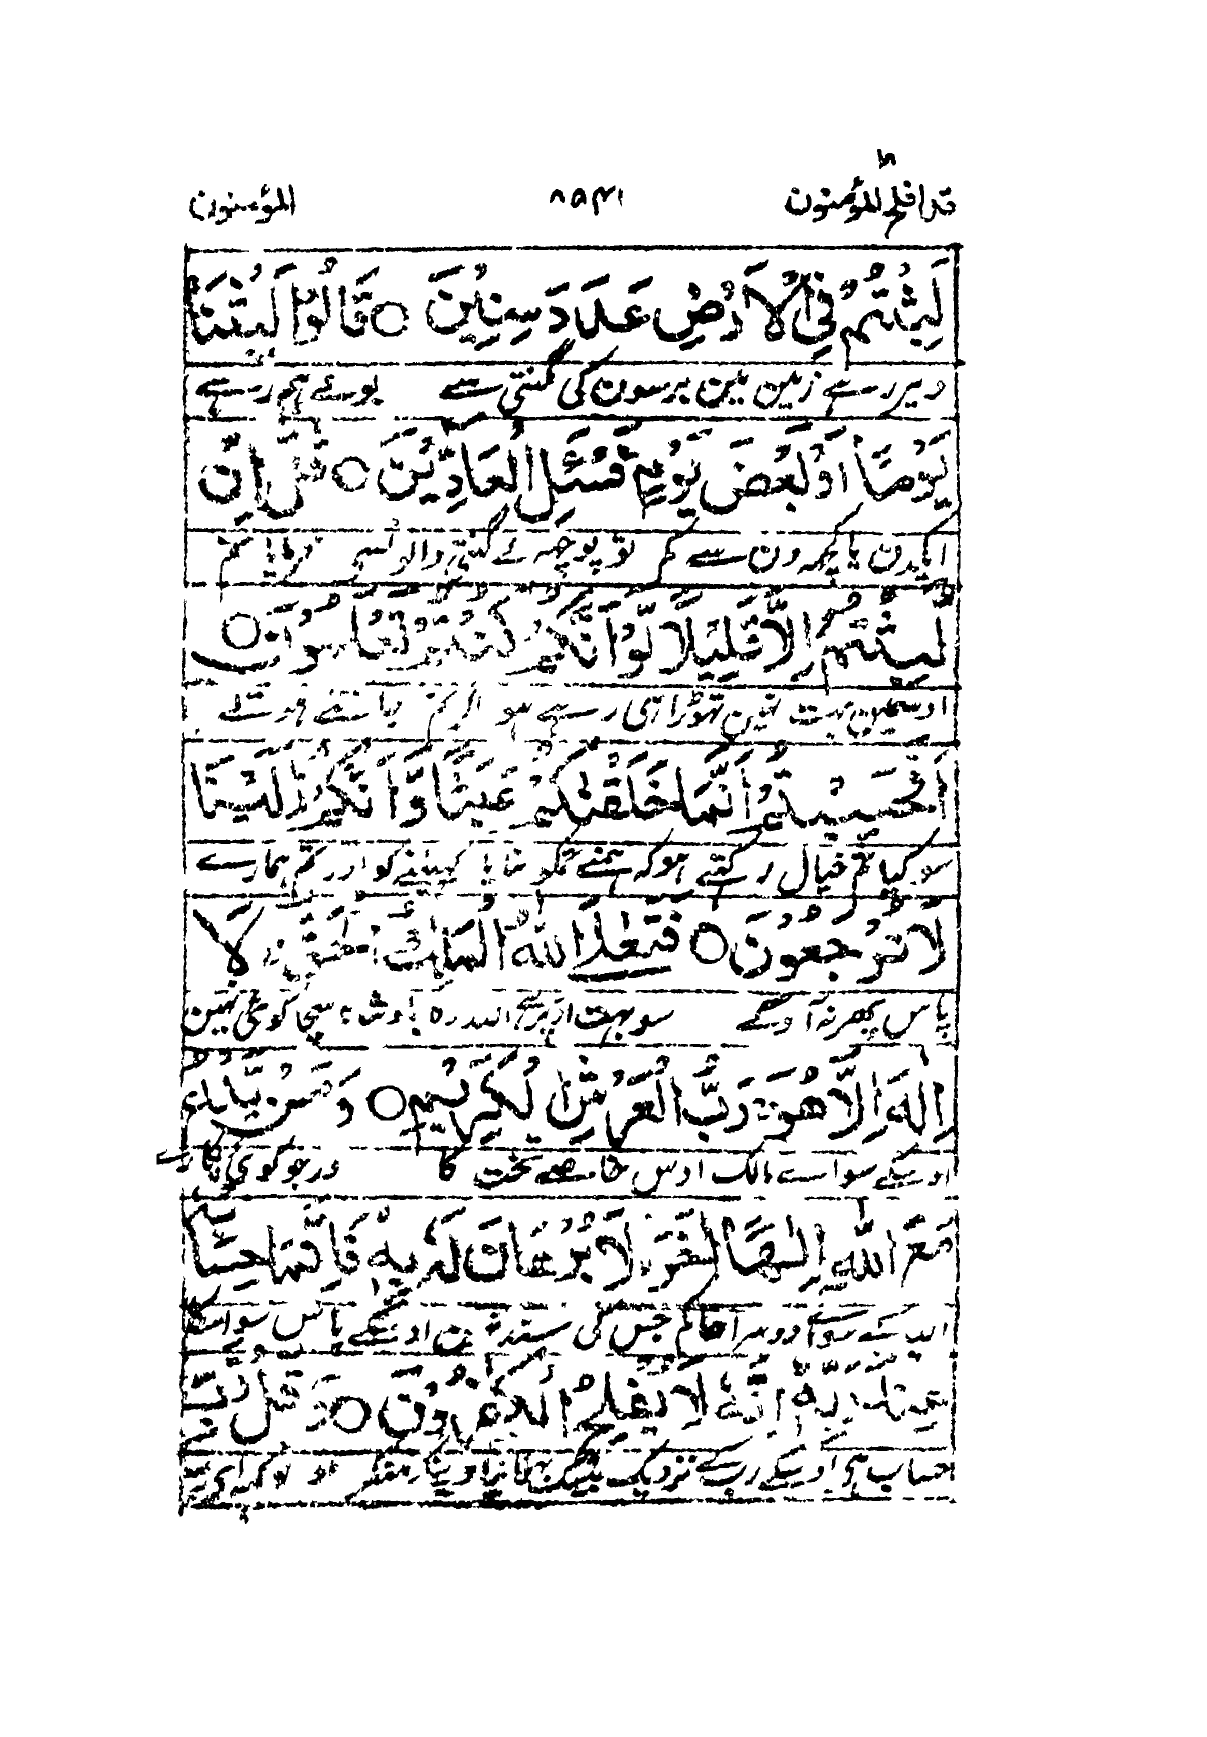 قد افلح المؤمنون ۱۸
المؤمنون
لَبِثْتُمْ فِي الْاَرْضِ عَدَدَ سِنِيْنَ ○ قَالُوْا لَبِثْنَا
دیر رہے زمین مین برسون کی گنتی سے بولے ہم رہے
يَوْمًا اَوْ بَعْضَ يَوْمٍ فَسْئَلِ الْعَادِّيْنَ ○ قٰلَ اِنْ
ایکدن یا کچھ دن سے کم تو پوچھ لے گنتی والونسی فرمایا تم
لَّبِثْتُمْ اِلَّا قَلِيْلًا لَّوْ اَنَّكُمْ كُنْتُمْ تَعْلَمُوْنَ ○
اوسمین بہت نہین تھوڑا ہی رہے ہو اگر تم جانتے ہوتے
اَفَحَسِبْتُمْ اَنَّمَا خَلَقْنٰكُمْ عَبَثًا وَّاَنَّكُمْ اِلَيْنَا
سو کیا تم خیال رکھتے ہو کہ ہمنے تمکو بنایا کھیلنے کو اور تم ہمارے
لَا تُرْجَعُوْنَ ○ فَتَعٰلَى اللّٰهُ الْمَلِكُ الْحَقُّ لَا
پاس پھر نہ آوگے سو بہت اوپر ہے اللہ وہ بادشاہ سچا کوئی نہین
اِلٰهَ اِلَّا هُوَ رَبُّ الْعَرْشِ الْكَرِيْمِ ○ وَمَنْ يَّدْعُ
اوسکے سواے مالک اوس خاصے تخت کا اور جو کوئی پکارے
مَعَ اللّٰهِ اِلٰهًا اٰخَرَ لَا بُرْهَانَ لَهٗ بِهٖ فَاِنَّمَا حِسَابُهٗ
اللہ کے سواے دوسرا حاکم جس کی سند نہین اوسکے پاس سو اسکا
عِنْدَ رَبِّهٖ اِنَّهٗ لَا يُفْلِحُ الْكٰفِرُوْنَ ○ وَقُلْ رَّبِّ
حساب ہی اوسکے رب کے نزدیک بیشک بھلا نپاوینگے منکر اور تو کہہ اے رب